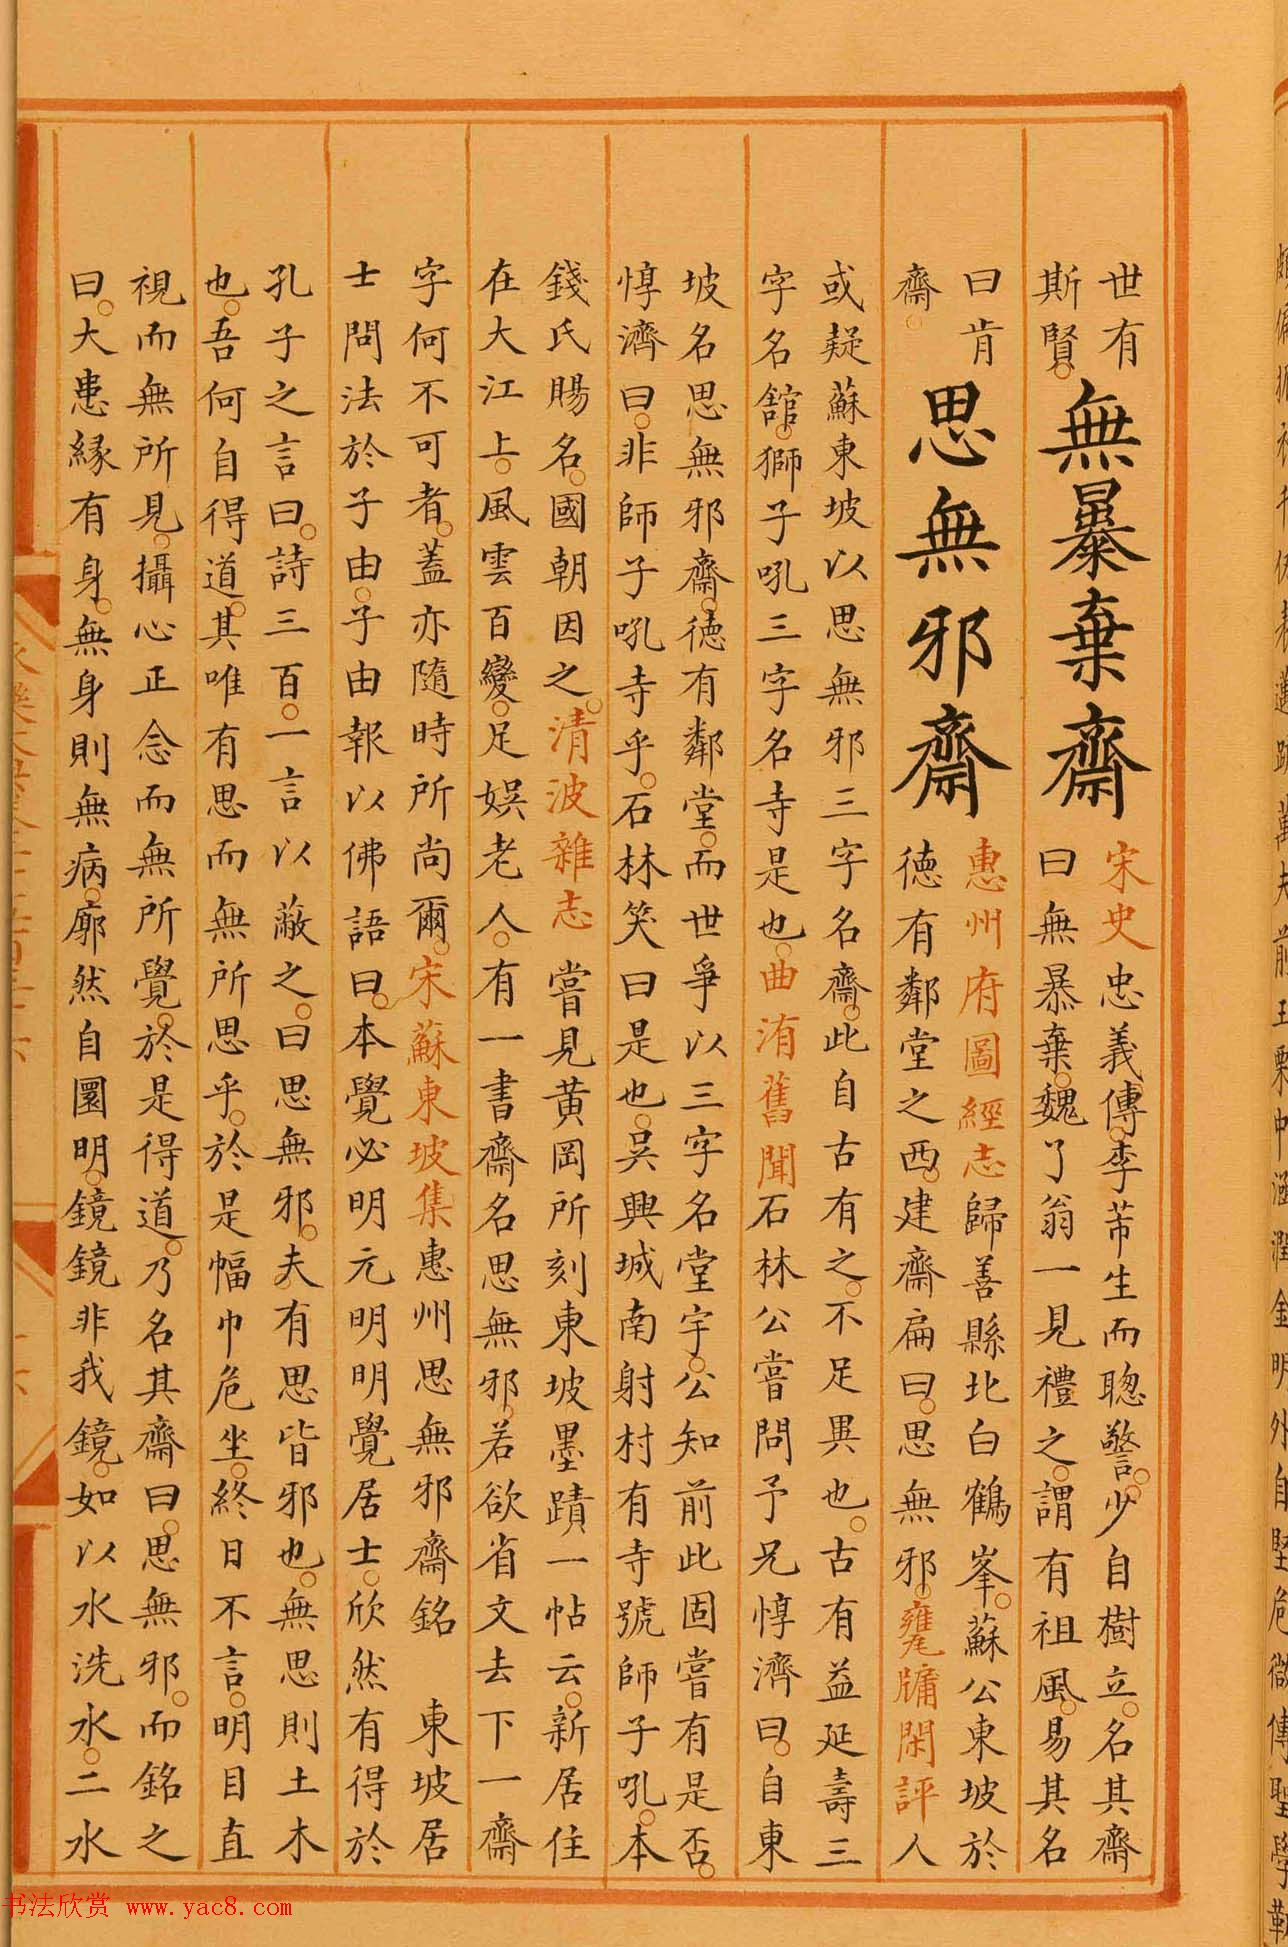 世有
斯賢。
無㬥棄齋
宋史忠義傳。李芾生而聰警。少自樹立。名其齋
曰無暴棄。魏了翁一見禮之。謂有祖風。易其名
曰肯
齋。
思無邪齋
惠州府圖經志歸善縣北白鶴峯。蘇公東坡於
德有鄰堂之西。建齋扁曰。思無邪。甕牖閑評人
或疑蘇東坡以思無邪三字名齋。此自古有之。不足異也。古有益延壽三
字名舘。獅子吼三字名寺是也。曲洧舊聞石林公嘗問予兄惇濟曰。自東
坡名思無邪齋。德有鄰堂。而世爭以三字名堂宇。公知前此固嘗有是否。
惇濟曰。非師子吼寺乎。石林笑曰是也。吳興城南射村有寺號師子吼。本
錢氏賜名。國朝因之。清波雜志 嘗見黃岡所刻東坡墨蹟一帖云。新居住
在大江上。風雲百變。足娛老人。有一書齋名思無邪。若欲省文去下一齋
字何不可者。蓋亦隨時所尚爾。宋蘇東坡集惠州思無邪齋銘 東坡居
士問法於子由。子由報以佛語曰。本覺必明元明明覺居士。欣然有得於
孔子之言曰。詩三百。一言以蔽之。曰思無邪。夫有思皆邪也。無思則土木
也。吾何自得道。其唯有思而無所思乎。於是幅巾危坐。終日不言。明目直
視而無所見。攝心正念而無所覺。於是得道。乃名其齋曰。思無邪。而銘之
曰。大患緣有身。無身則無病。廓然自圜明。鏡鏡非我鏡。如以水洗水。二水
书法欣赏 www.yac8.com